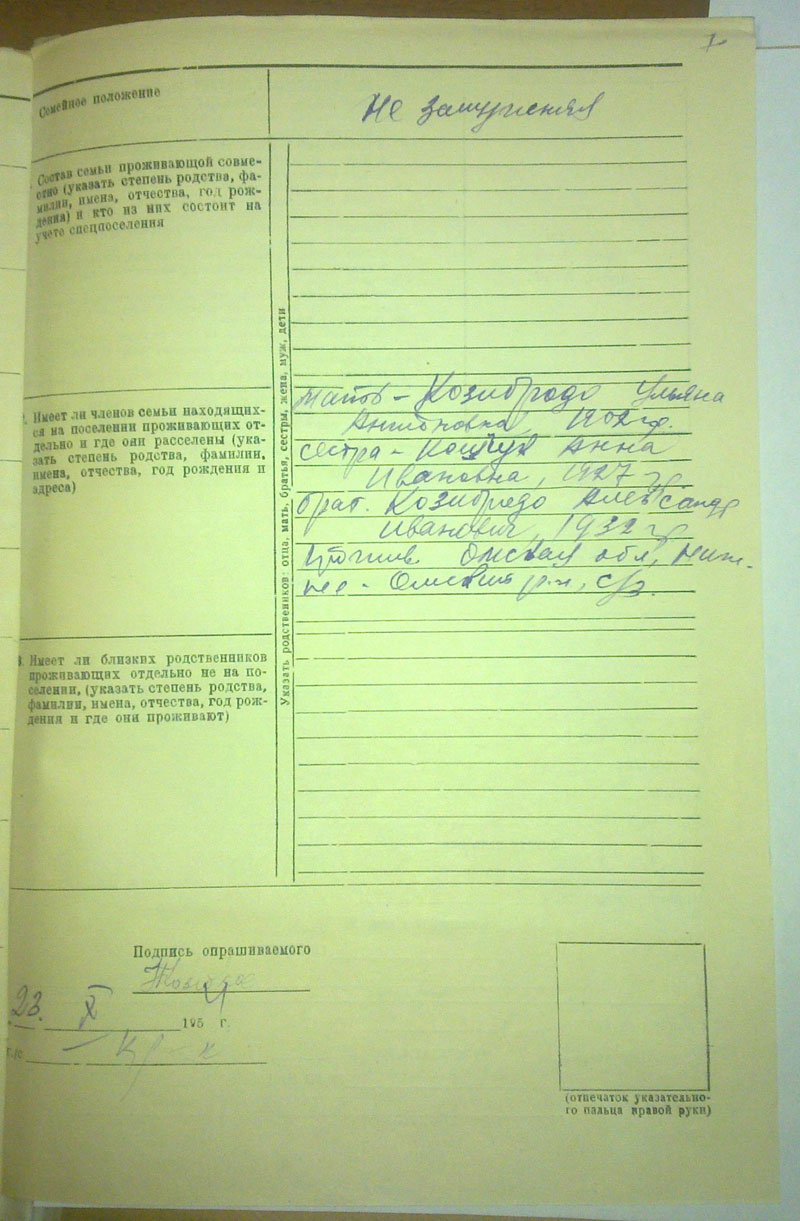 1
Семейное положение
Не замужняя
Состав семьи проживающей совме-
стно (указать степень родства, фа-
милии, имена, отчества, год рож-
дения) и кто из них состоит на
учете спецпоселения
Указать родственников: отца, мать, братья, сестры, жена, муж, дети
Имеет ли членов семьи находящих-
ся на поселении проживающих от-
дельно и где они расселены (ука-
зать степень родства, фамилии,
имена, отчества, год рождения и
адреса)
мать - Козибродо Ульяна
Антоновна, 1902 г.
сестра - Анна
Ивановна, 1927 г
брат. Козибродо Александр
Иванович, 1932 г
прожив. Омская обл, Ниж-
не - Омский р-н, с/з.
Имеет ли близких родственников
проживающих отдельно не на по-
селении, (указать степень родства,
фамилии, имена, отчества, год рож-
дения и где они проживают)
Подпись опрашиваемого
23. X 195 г.
(отпечаток указательно-
го пальца правой руки)